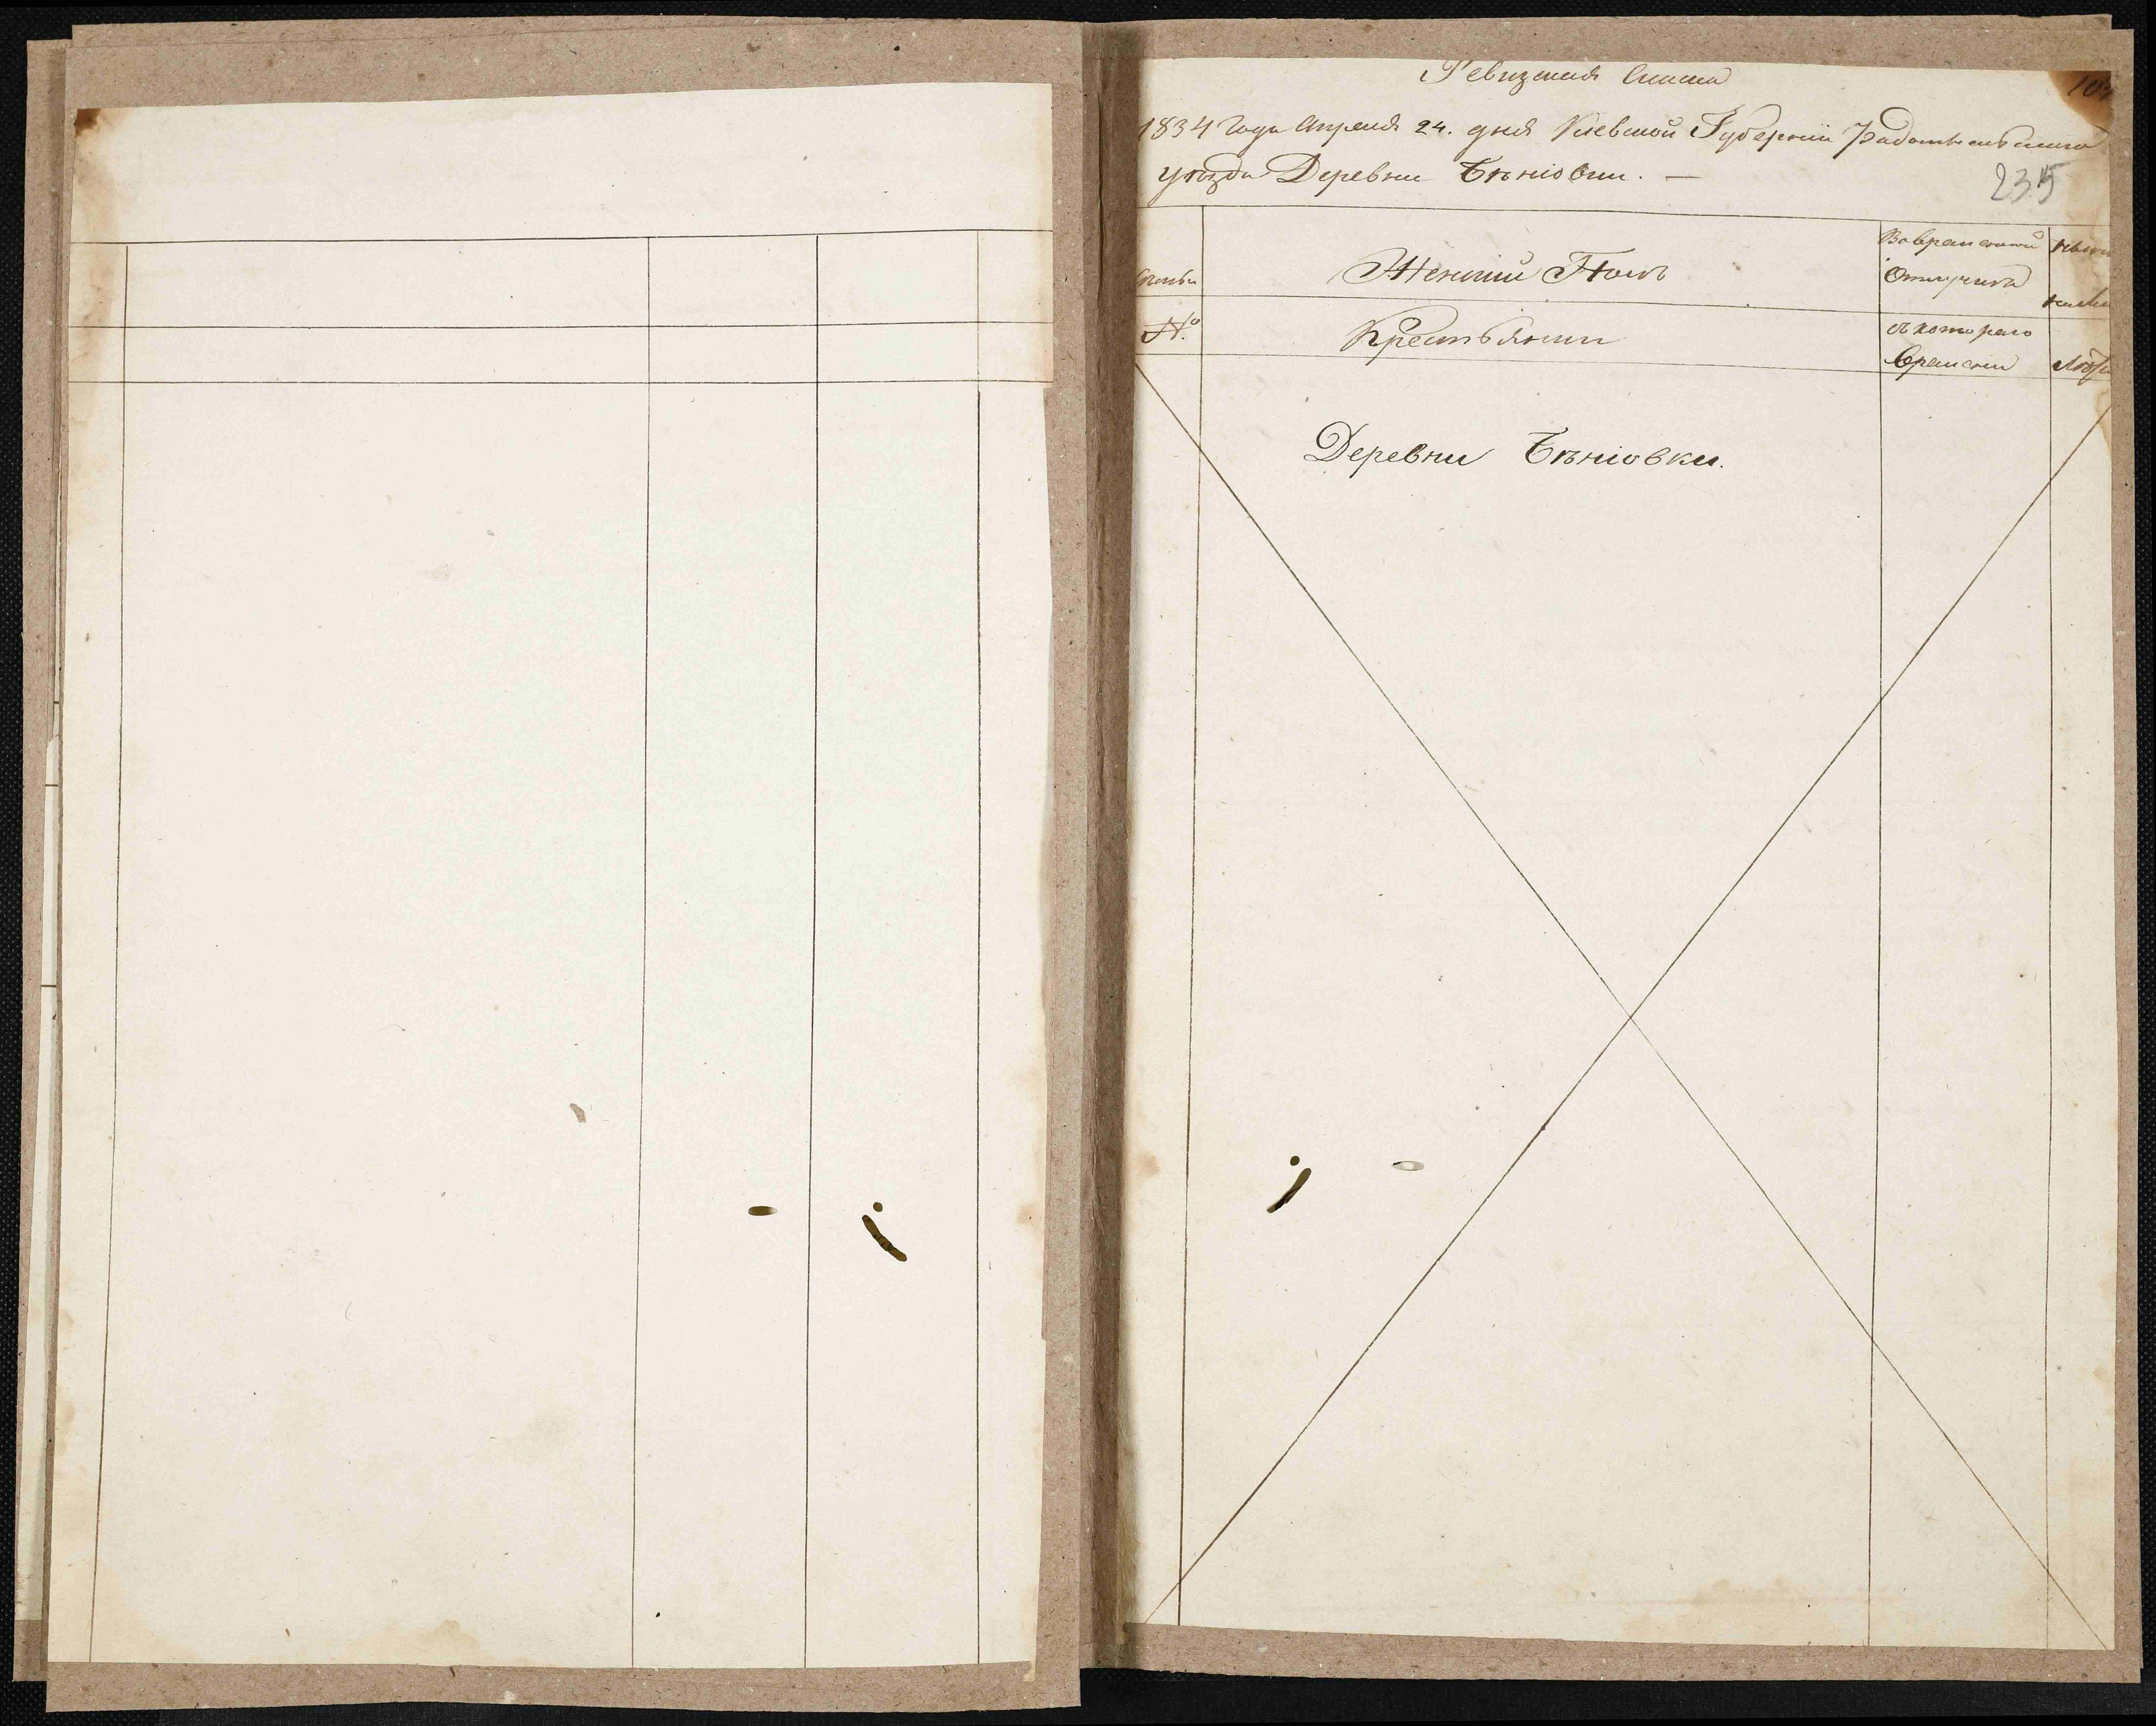 Ревизская Сказка
1834 года Апреля 24. дня Киевской Губернии Радомысльского
уезда Деревни Бѣніовки. —
235
Семьи
Женский Полъ
Во временной
Отлучкѣ
№
Крестьянии
съ котораго
времени
Лѣта
Деревни Бѣніовки.